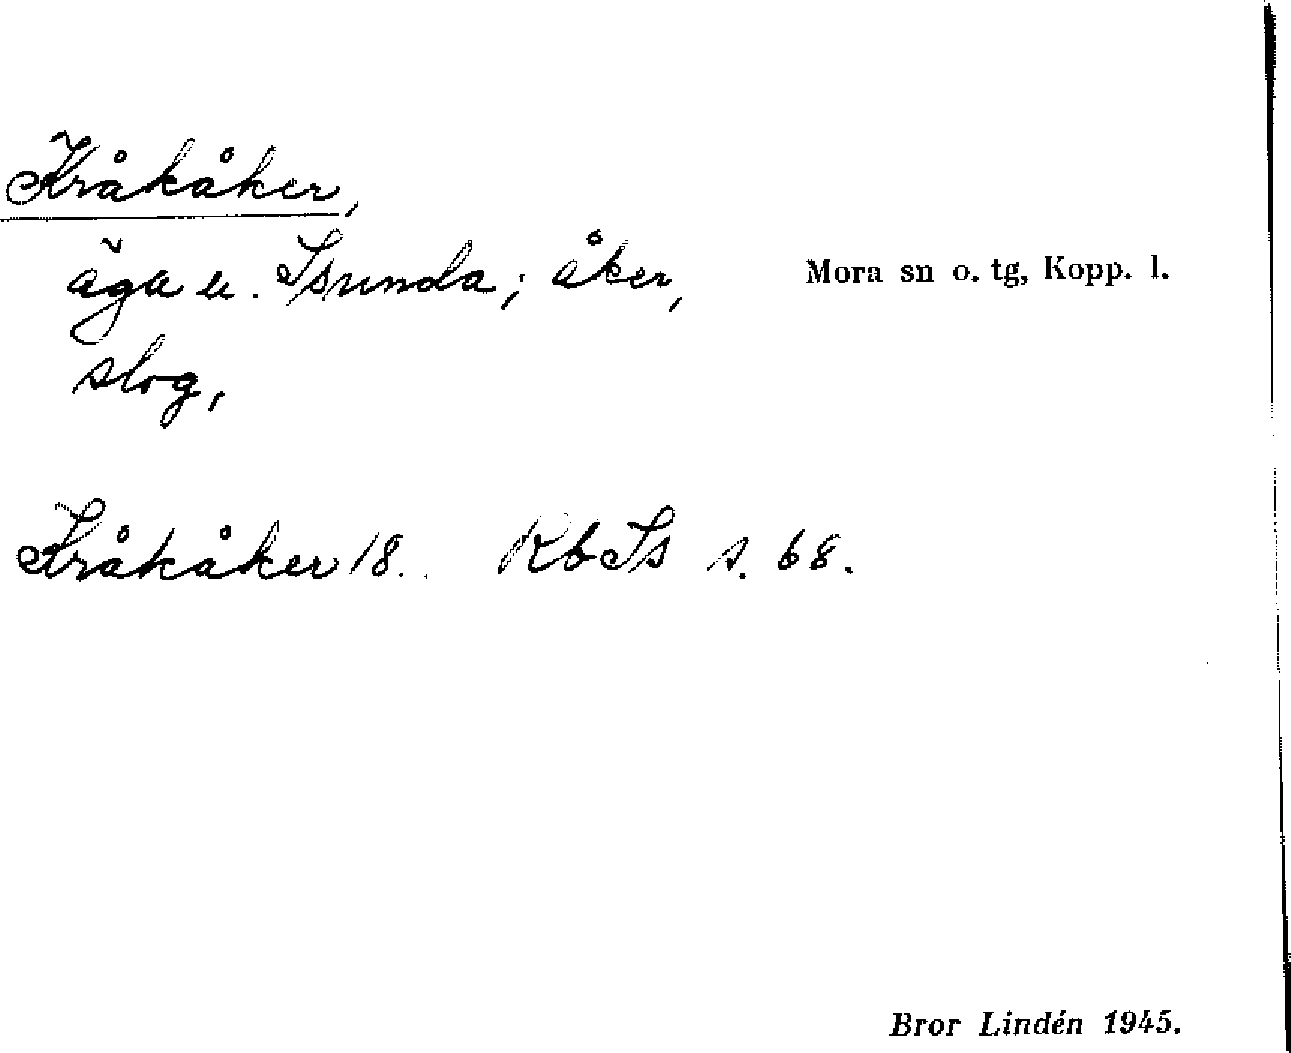 Kråkåker,
äga u. Isunda; åker,
Mora sn o. tg, Kopp. l.
slog,
Kråkåker 18.. Kb Is s. 68.
Bror Lindén 1945.